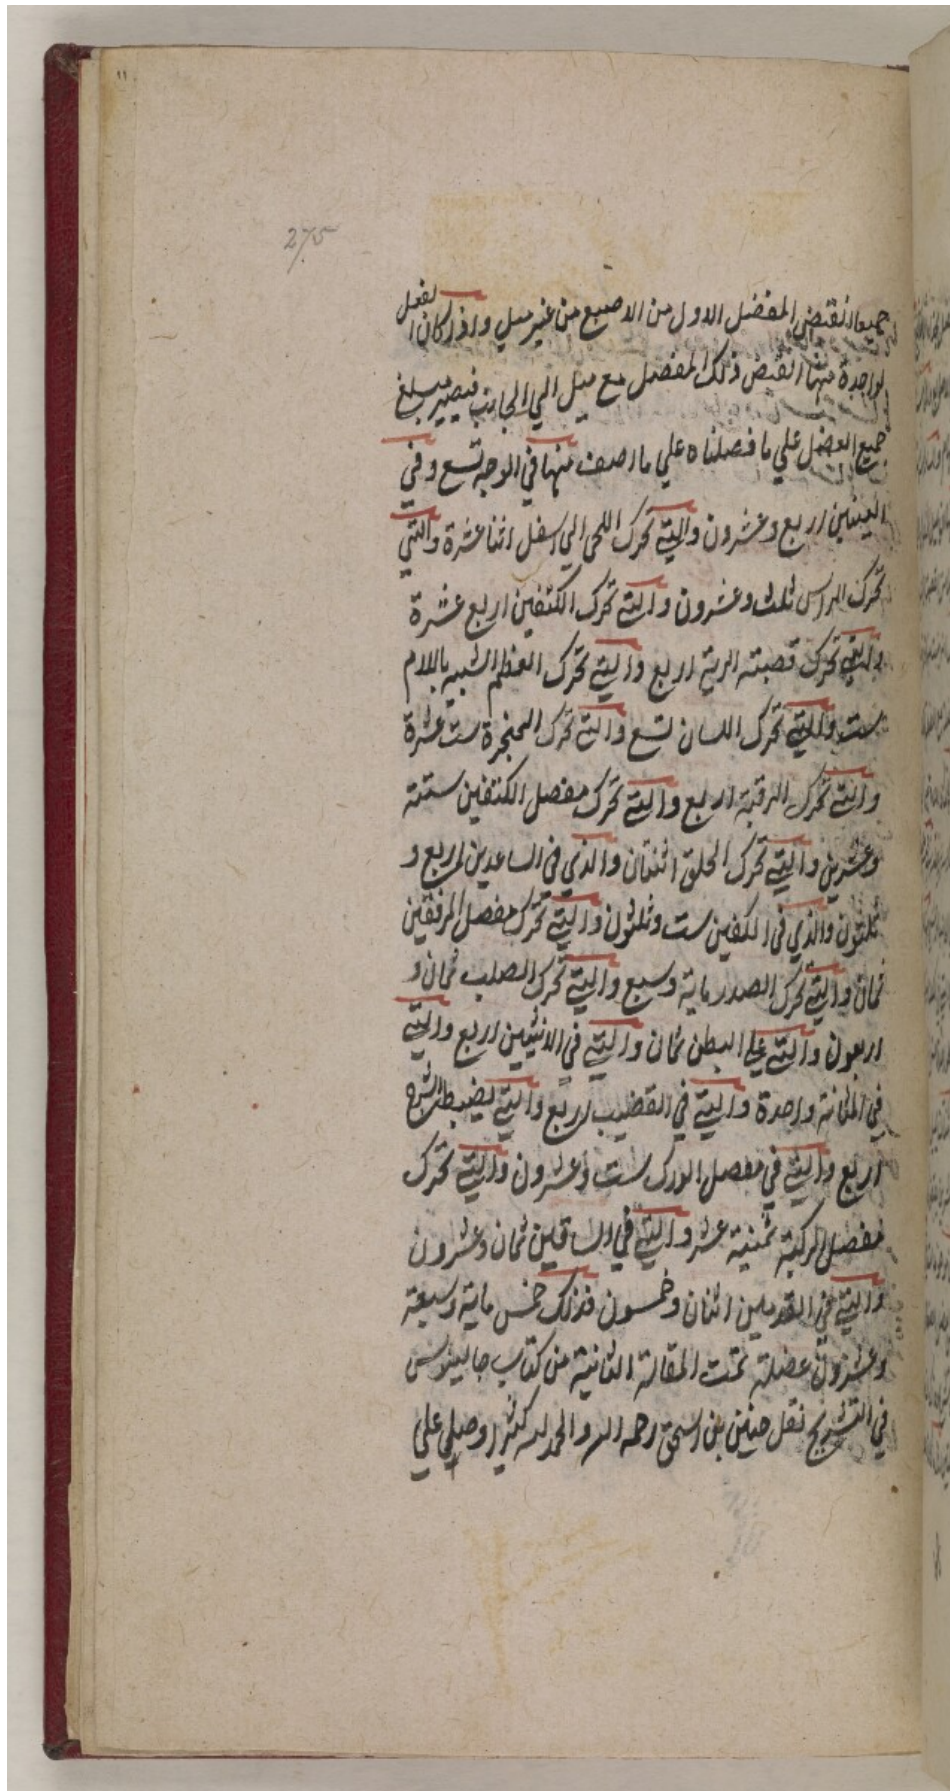 ١١
275
جميعا انقبض المفصل الاول من الاصبع من غير ميل واذا كان الفعل
لواحدة منهما انقبض ذلك المفصل مع ميل الي الجانب فيصير مبلغ
جميع العضل علي ما فصلناه علي ما اصف منها في الوجه تسع وفي
العينين اربع وعشرون والتي تحرك اللحي الي اسفل اثنا عشرة والتي
تحرك الراس ثلث وعشرون والتي تحرك الكتفين اربع عشرة
والتي تحرك قصبته الرية اربع والتي تحرك العظم الشبيه باللام
ست والتي تحرك اللسان تسع والتي تحرك الحنجرة ست عشرة
والتي تحرك الرقبة اربع والتي تحرك مفصل الكتفين ستته
وعشرين والتي تحرك الحلق اثنتان والذي في الساعدين اربع و
ثلثون والذي في الكفين ست وثلثون والتي تحرك مفصل المرفقين
ثمان والتي تحرك الصدر ماية وسبع والتي تحرك الصلب ثمان و
اربعون والتي علي البطن ثمان والتي في الانثيين اربع والتي
في المثانة واحدة والتي في القضيب اربع والتي يضبط الشرج
اربع والتي في مفصل الورك ست وعشرون والتي تحرك
مفصل الركبة ثمنية عشر والتي في الساقين ثمان وعشرون
والتي في القدمين اثنان وخمسون فذلك خمس ماية وسبعة
وعشرون عضلة تمت المقالة الثانية من كتاب جالينوس
في التشريح نقل حنين بن اسحق رحمه الله والحمد لله كثيرا وصلي علي